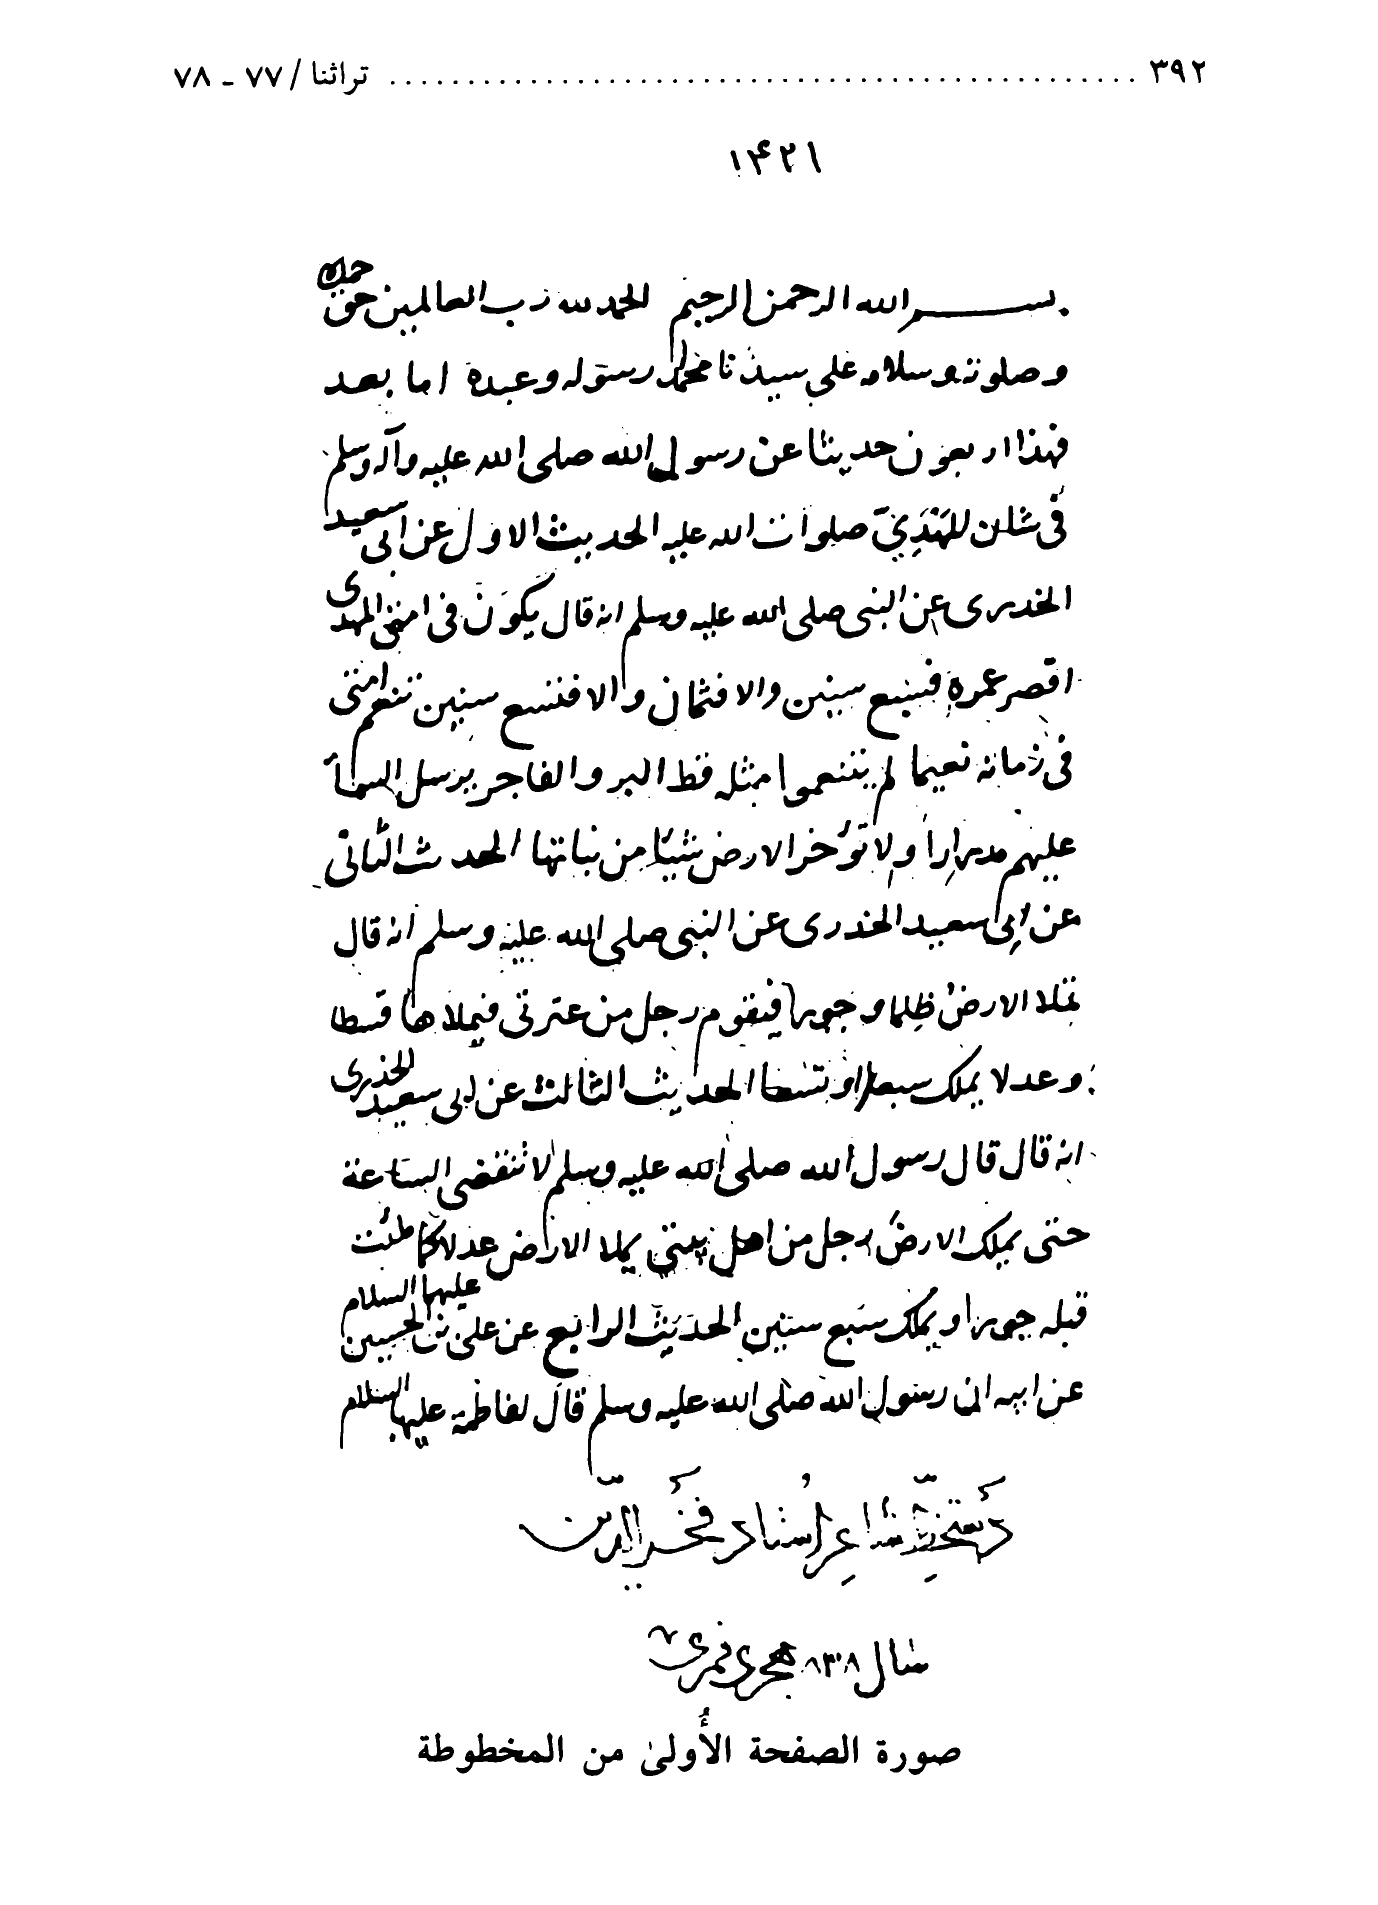 ٣٩٢ ................................................ تراثنا / ٧٧ ـ ٧٨
١٤٢١
بسم الله الرحمن الرحيم الحمد لله رب العالمين حق حمده
وصلوته وسلامه على سيدنا محمد رسوله وعبده اما بعد
فهذا اربعون حديثا عن رسول الله صلى الله عليه وآله وسلم
فى شان المَهْدِيّ صلوات الله عليه الحديث الاول عن ابى سعيد
الخدرى عن النبى صلى الله عليه وسلم انه قال يكون فى امتى المهدى
اقصر عمره فسبع سنين والا فثمان والا فتسع سنين تتنعم امتى
فى زمانه نعيما لم يتنعموا مثله قط البر والفاجر يرسل السمأ
عليهم مدرارا ولا تؤخر الارض شيئا من نباتها الحدث الثانى
عن ابى سعيد الخدرى عن النبى صلى الله عليه وسلم انه قال
تملا الارض ظلما وجورا فيقوم رجل من عترتى فيملاها قسطا
وعدلا يملك سبعا او تسعا الحديث الثالث عن ابى سعيد الخدرى
انه قال قال رسول الله صلى الله عليه وسلم لا تنقضى الساعة
حتى يملك الارض رجل من اهل بيتى يملا الارض عدلا كما ملئت
قبله جورا ويملك سبع سنين الحديث الرابع عن على بن الحسين عليهما السلام
عن ابيه ان رسول الله صلى الله عليه وسلم قال لفاطمة عليها السلام
دستخط شاعر استاد فخر الدين
سال ٨٣٠٨ هجرى قمرى
صورة الصفحة الأُولىٰ من المخطوطة